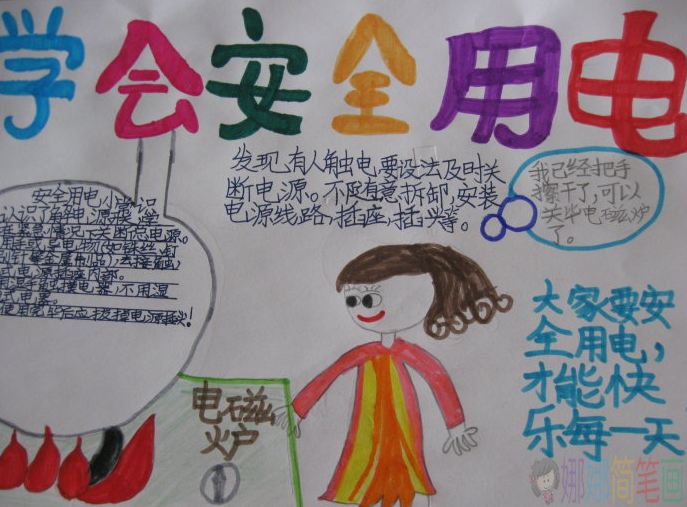 学会安全用电
发现有人触电要设法及时关
断电源。不随意拆卸,安装
电源线路,插座,插头等。
我已经把手
擦干了,可以
关电磁炉
了。
安全用电小常识
认识了解电源总
紧急情况下关断总电源。
去接触,
电源插座内部。
不用湿
使用完毕后应拔掉电源插头!
大家要安
全用电,
才能快
乐每一天
电磁
炉
娜娜简笔画